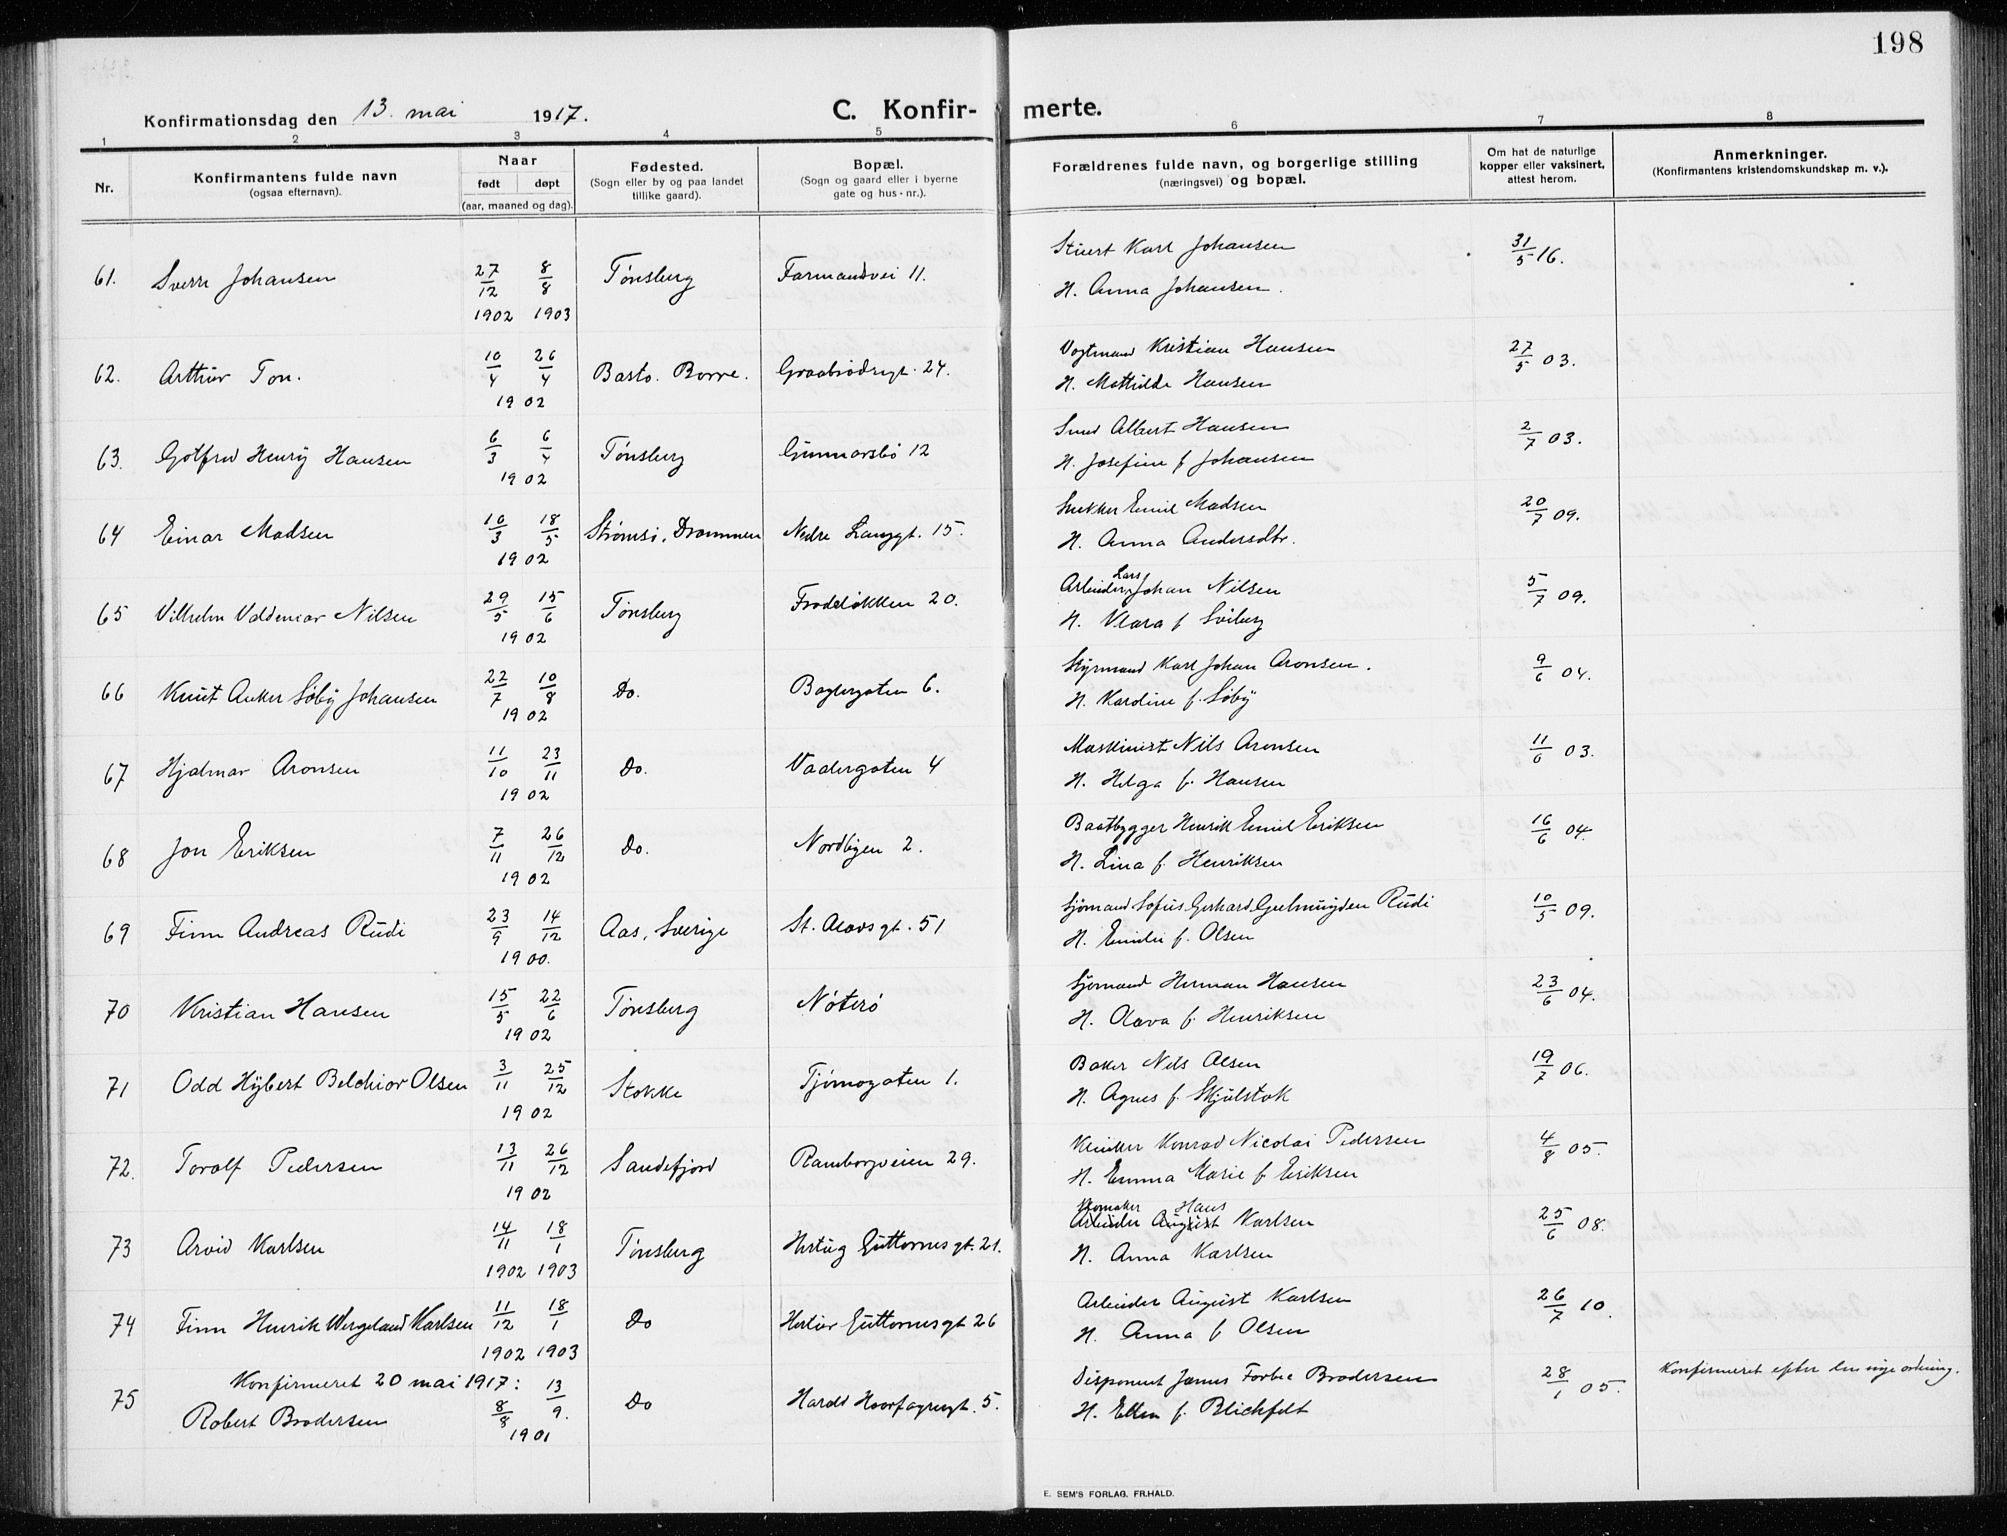 198
Konfirmationsdag den 13. mai 1917.
C. Konfirmerte.
1 2 3 4 5 6 7 8
Nr.
Konfirmantens fulde navn
(ogsaa efternavn).
Naar
født døpt
(aar, maaned og dag).
Fødested.
(Sogn eller by og paa landet
tillike gaard).
Bopæl.
(Sogn og gaard eller i byerne
gate og hus-nr.).
Forældrenes fulde navn, og borgerlige stilling
(næringsvei) og bopæl.
Om hat de naturlige
kopper eller vaksinert,
attest herom.
Anmerkninger.
(Konfirmantens kristendomskundskap m. v.).
61. Sverre Johansen 27/12 1902 8/8 1903 Tønsberg Farmandsvei 11. Stuert Karl Johansen 31/5 16.
H. Anna Johansen.
62. Arthur Ton. 10/4 26/4 1902 Basto. Borre. Graabrødregt. 24. Vogtmand Kristian Hansen 27/5 03.
H. Mathilde Hansen
63. Gotfred Henry Hansen 6/3 6/4 1902 Tønsberg Gunnarsbø 12 Smed Albert Hansen 2/7 03.
H. Josefine f Johansen
64 Einar Madsen 10/3 18/5 1902 Strømsø, Drammen Nedre Langgt. 15. Snekker Emil Madsen 20/7 09.
H. Anna Andersdtr.
65 Vilhelm Valdemar Nilsen 29/5 15/6 1902 Tønsberg Frodeløkken 20. Arbeider Lars Johan Nilsen 5/7 09.
H. Klara f Solberg
66 Knut Anker Søby Johansen 22/7 10/8 1902 Do. Baglergaten 6. Styrmand Karl Johan Aronsen. 9/6 04.
H. Karoline f. Søby
67 Hjalmar Aronsen 11/10 23/11 1902 Do. Vadergaten 4 Maskinist Nils Aronsen 11/6 03.
H. Helga f. Hansen
68 Jon Eriksen 7/11 26/12 1902 Do. Nordbyen 2. Baatbygger Henrik Emil Eriksen 16/6 04.
H. Lina f. Henriksen
69 Finn Andreas Rudi 23/9 14/12 1900. Aas, Sverige St. Olavsgt. 51 Sjømand Sofus Gerhard Gulmuyden Rudi 10/5 09.
H. Emilie f. Olsen
70 Kristian Hansen 15/5 22/6 1902 Tønsberg Nøterø Sjømand Herman Hansen 23/6 04.
H. Olava f. Henriksen
71 Odd Hybert Belchior Olsen 3/11 25/12 1902 Stokke Tjømogaten 1. Baker Nils Olsen 19/7 06.
H. Agnes f. Skjølstok
72. Toralf Pedersen 13/11 26/12 1902 Sandefjord Ramborgveien 29. Klinker Konrad Nicolai Pedersen 4/8 05.
H. Emma Marie f Eriksen
73 Arvid Karlsen 14/11 1902 18/1 1903 Tønsberg Hertug Guttormsgt. 21. Skomaker Hans
Arbeider August Karlsen 25/6 08.
H. Anna Karlsen
74 Finn Henrik Wergeland Karlsen 11/12 1902 18/1 1903 Do Hertug Guttormsgt 26 Arbeider August Karlsen 26/7 10.
H. Anna f Olsen
Konfirmeret 20 mai 1917:
75 Robert Brodersen 8/8 13/9. 1901 Do Harald Haarfagresgt. 5. Disponent James Forbe Brodersen 28/1 05. Konfirmeret efter den nye ordning.
H. Ellen f. Blichfelt
E. SEM'S FORLAG. FR.HALD.